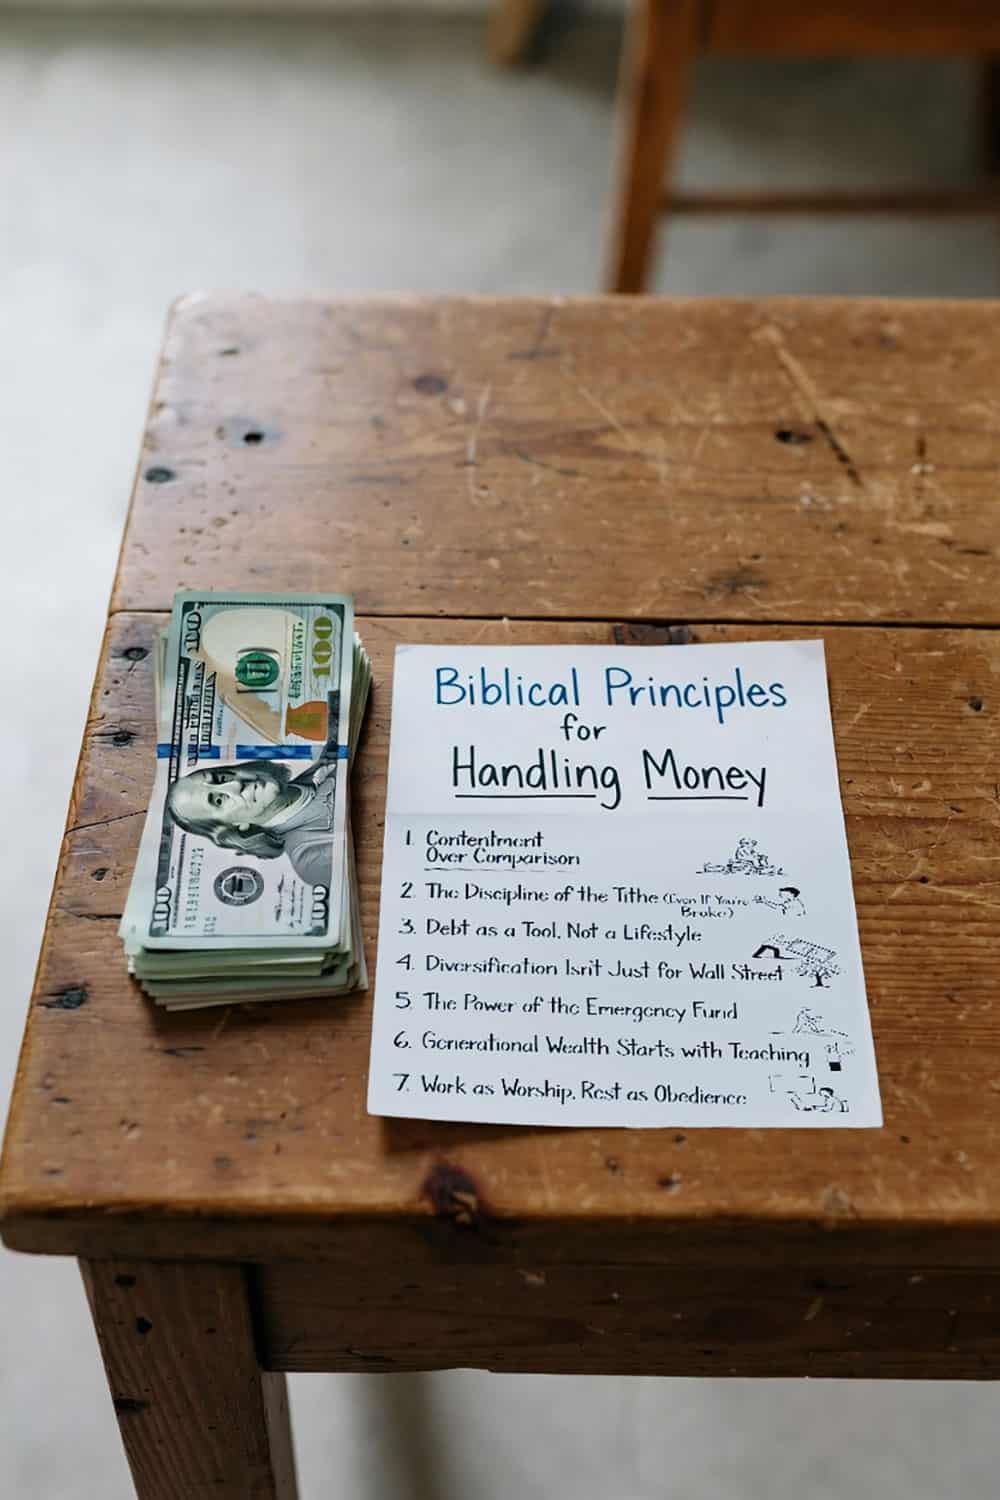 100
100
Biblical Principles
for
Handling Money
1. Contentment
Over Comparison
2. The Discipline of the Tithe (Even If You're
Broke)
3. Debt as a Tool, Not a Lifestyle
4. Diversification Isn't Just for Wall Street
5. The Power of the Emergency Fund
6. Generational Wealth Starts with Teaching
7. Work as Worship, Rest as Obedience
100
100